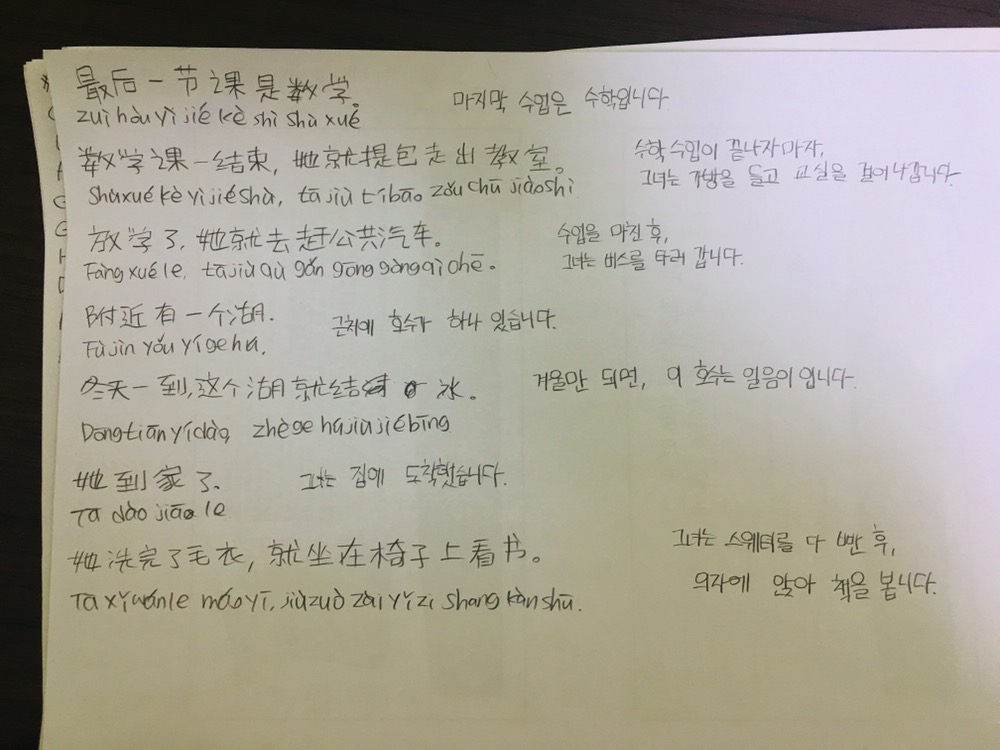 最后一节课是数学。
마지막 수업은 수학입니다
zuì hòu yì jié kè shì shù xué
数学课一结束，她就提包走出教室。
수학 수업이 끝나자마자,
그녀는 가방을 들고 교실을 걸어나갑니다.
Shùxué kè yì jiéshù, tā jiù tíbāo zǒu chū jiàoshì
放学了，她就去赶公共汽车。
수업을 마친 후,
그녀는 버스를 타러 갑니다.
Fàng xué le, tā jiù qù gǎn gōng gòng qì chē。
附近有一个湖.
근처에 호수가 하나 있습니다.
Fù jìn yǒu yí ge hú.
冬天一到,这个湖就结冰。
겨울만 되면, 이 호수는 얼음이 입니다.
Dōngtiān yí dào, zhège hú jiù jié bīng
她到家了.
그녀는 집에 도착했습니다.
Ta dào jiāo le
她洗完了毛衣，就坐在椅子上看书。
그녀는 스웨터를 다 빤 후,
의자에 앉아 책을 봅니다.
Ta xǐ wánle máo yī, jiù zuò zài yǐ zi shang kàn shū.